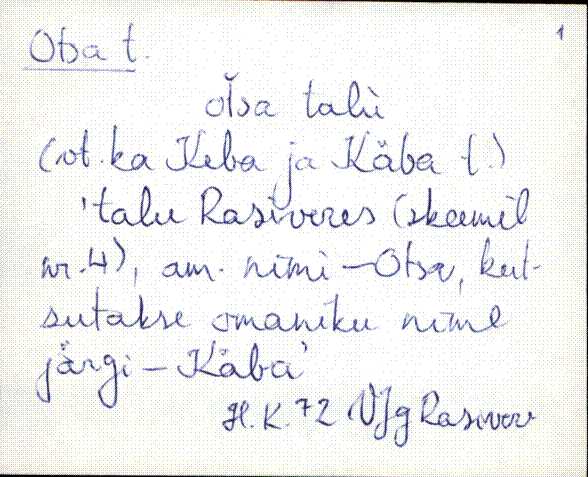 Otsa t. 1
otsa talu
(vt. ka Keba ja Käba t.)
'talu Rasiveres (skeemil
nr. 4), am. nimi – Otsa, kut-
sutakse omaniku nime
järgi – Käba'
H. K. 72 VJg Rasivere